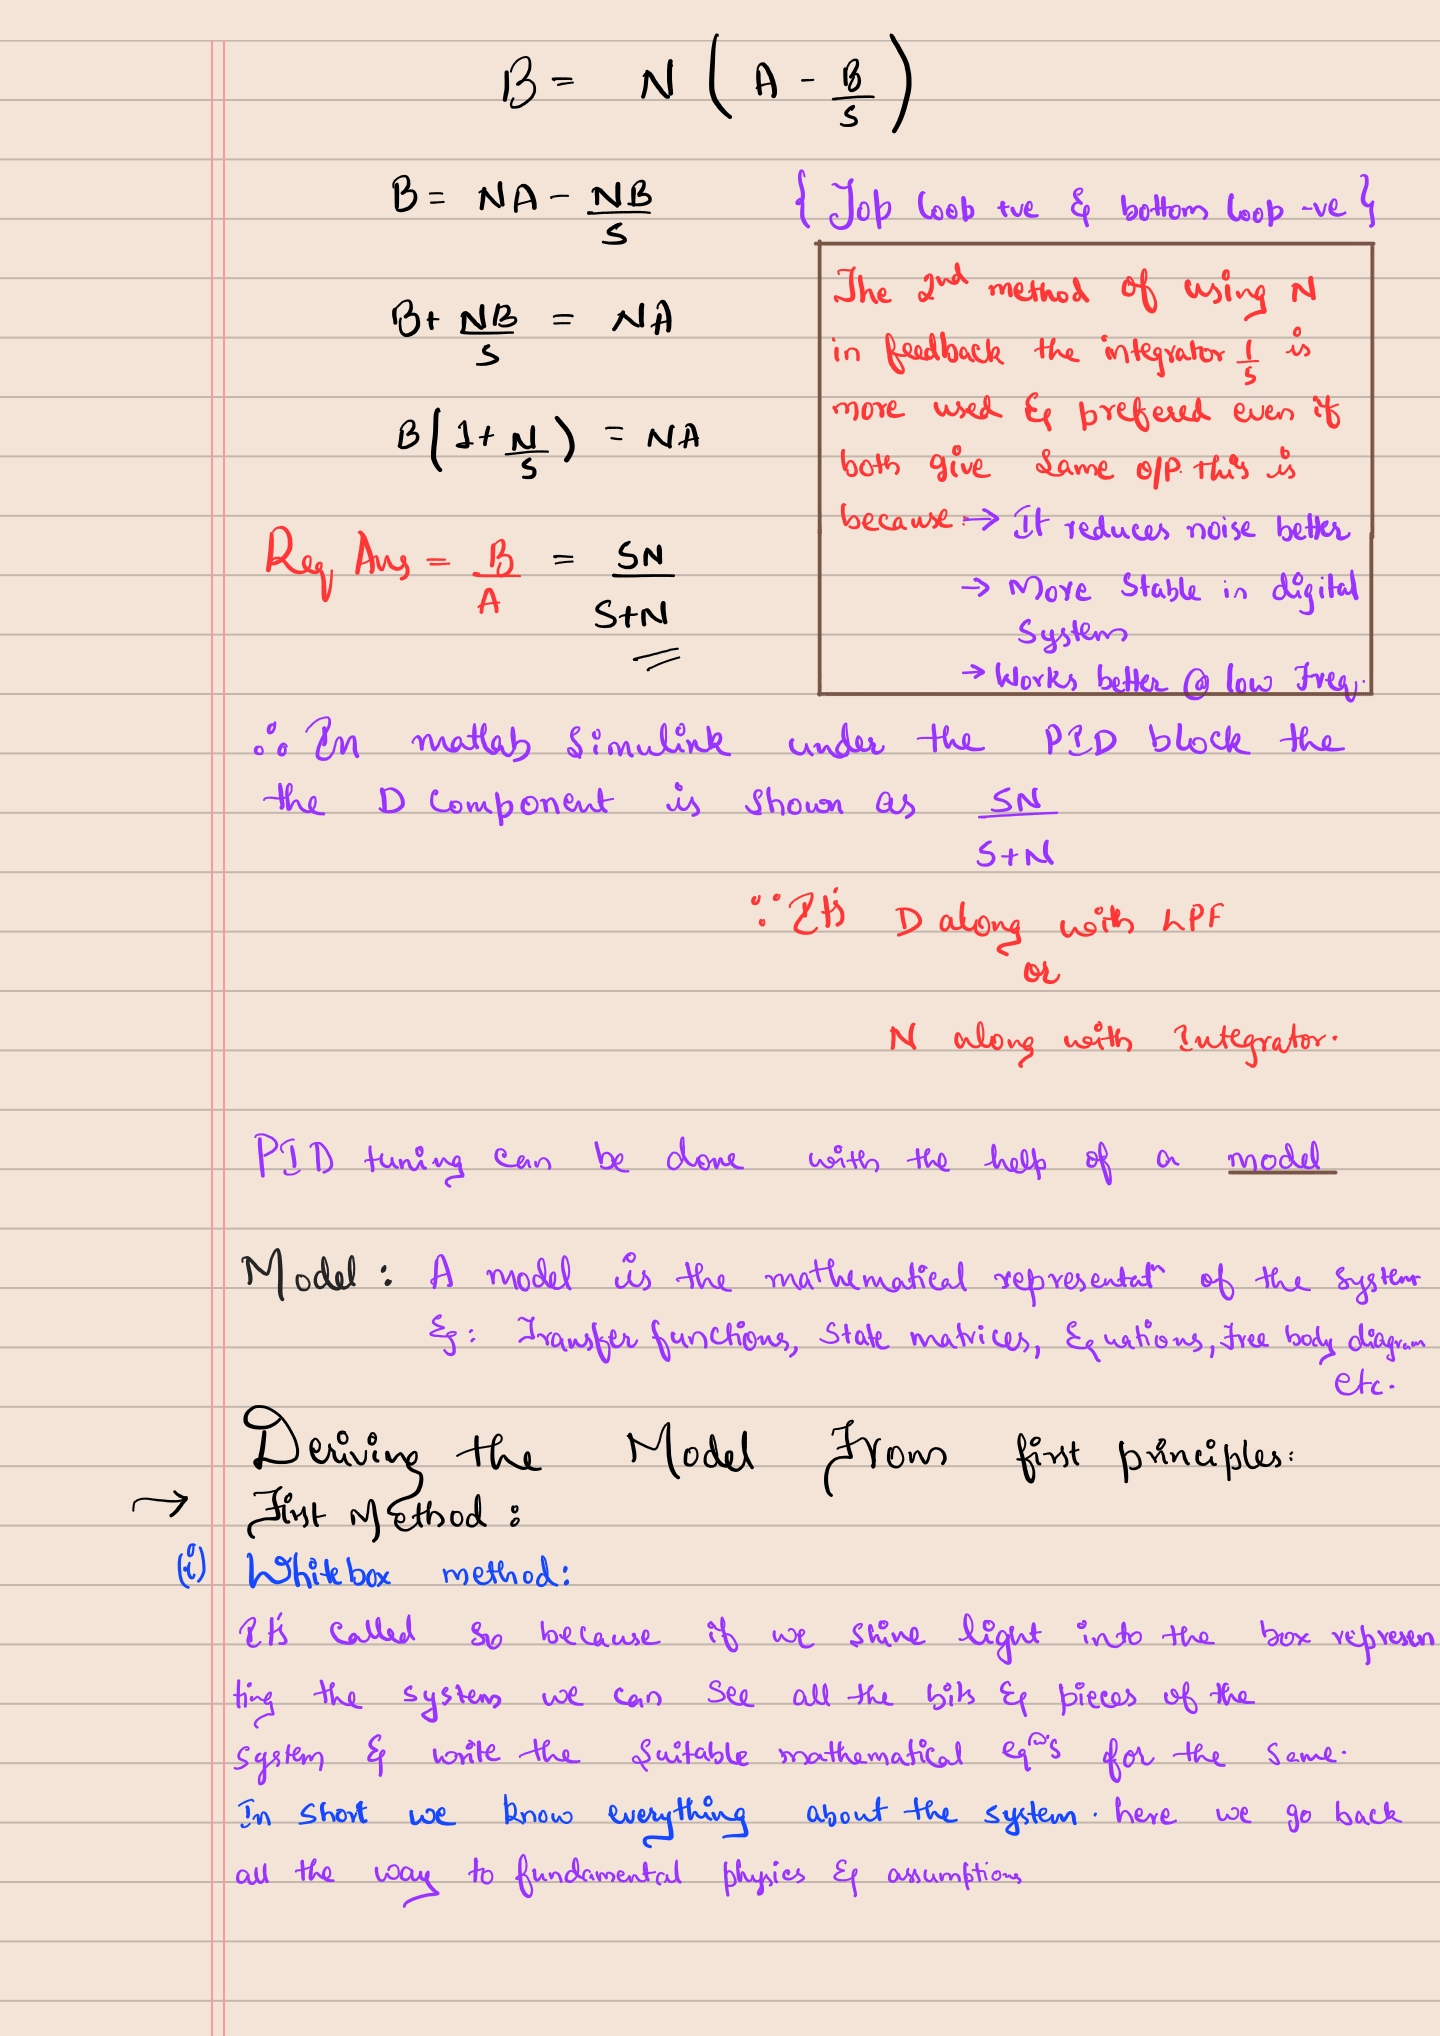 B = N ( A - B/S )
B = NA - NB/S
{ Top loop +ve & bottom loop -ve }
B + NB/S = NA
B ( 1 + N/S ) = NA
Req Ans = B/A = SN/S+N
The 2nd method of using N
in feedback the integrator 1/S is
more used & prefered even if
both give same o/p. this is
because :→ It reduces noise better
→ More Stable in digital
System
→ Works better @ low Freq.
∴ In matlab Simulink under the PID block the
the D component is shown as SN/S+N
∵ It's D along with LPF
or
N along with Integrator.
PID tuning can be done with the help of a model
Model : A model is the mathematical representatⁿ of the system
Eg: Transfer functions, State matrices, Equations, Free body diagram
etc.
Deriving the Model From first principles:
→ First Method :
(i) Whitebox method:
It's called so because if we shine light into the box represen
ting the system we can see all the bits & pieces of the
system & write the suitable mathematical eqⁿs for the same.
In short we know everything about the system. here we go back
all the way to fundamental physics & assumptions